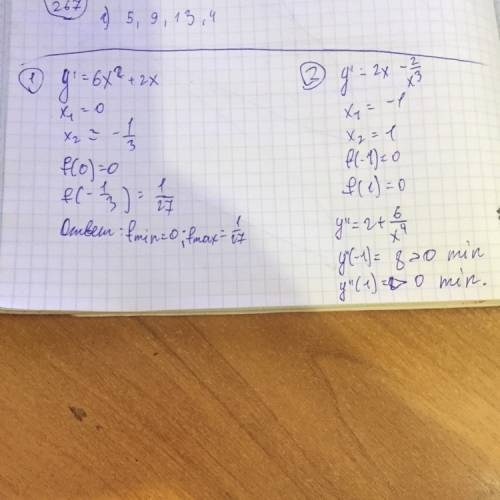 267
1) 5, 9, 13, 4
1 y' = 6x² + 2x
x₁ = 0
x₂ = -1/3
f(0) = 0
f(-1/3) = 1/27
Ответ: fmin = 0; fmax = 1/27
2 y' = 2x - 2/x³
x₁ = -1
x₂ = 1
f(-1) = 0
f(1) = 0
y'' = 2 + 6/x⁴
y'(-1) = 8 > 0 min
y''(1) = 8 > 0 min.